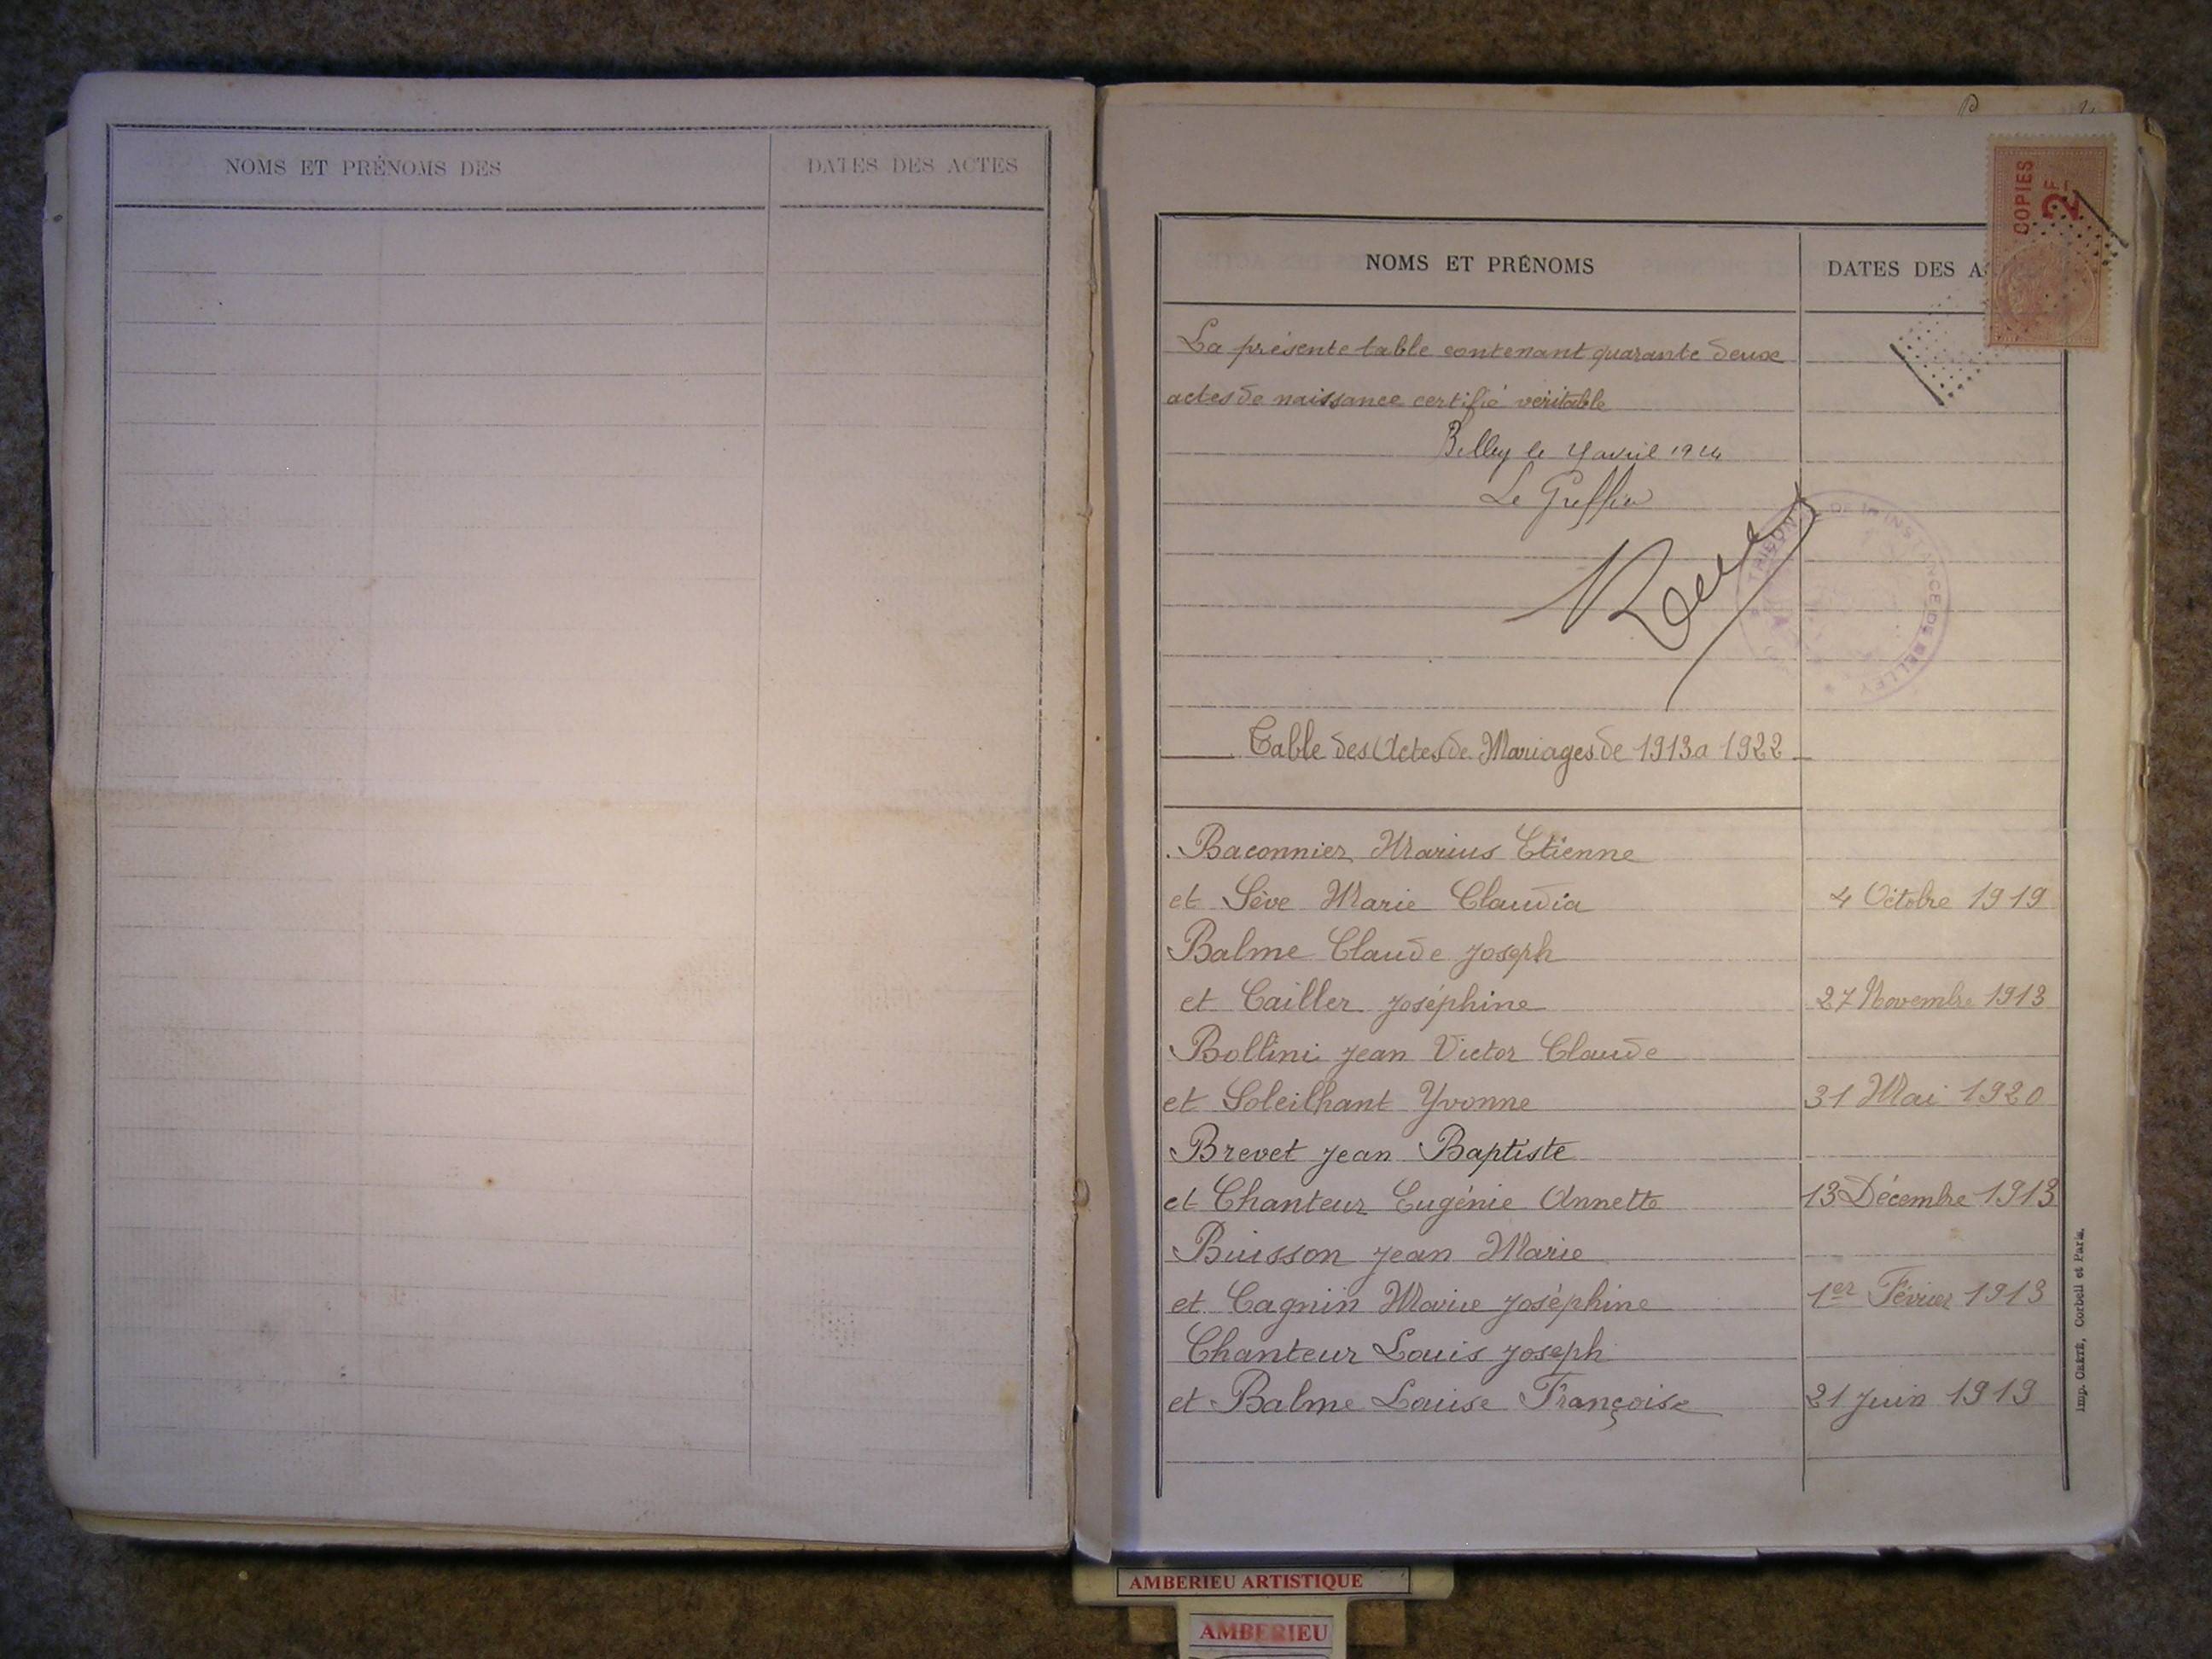 NOMS ET PRÉNOMS DES
DATES DES ACTES
COPIES
2F
NOMS ET PRÉNOMS
DATES DES A
La présente table contenant quarante deux
actes de naissance certifié véritable
Belley le 4 avril 1924
Le Greffier
TRIBUNAL DE 1re INSTANCE DE BELLEY
Table des Actes de Mariages de 1913 a 1922
Baconnier Marius Etienne
et Sève Marie Claudia 4 Octobre 1919
Balme Claude Joseph
et Cailler Joséphine 27 Novembre 1913
Bollini Jean Victor Claude
et Soleilhant Yvonne 31 Mai 1920
Brevet Jean Baptiste
et Chanteur Eugénie Annette 13 Décembre 1913
Buisson Jean Marie
et Cagnin Marie Joséphine 1er Février 1913
Chanteur Louis Joseph
et Balme Louise Françoise 21 Juin 1919
Imp. CRÉTÉ, Corbeil et Paris.
AMBERIEU ARTISTIQUE
AMBERIEU